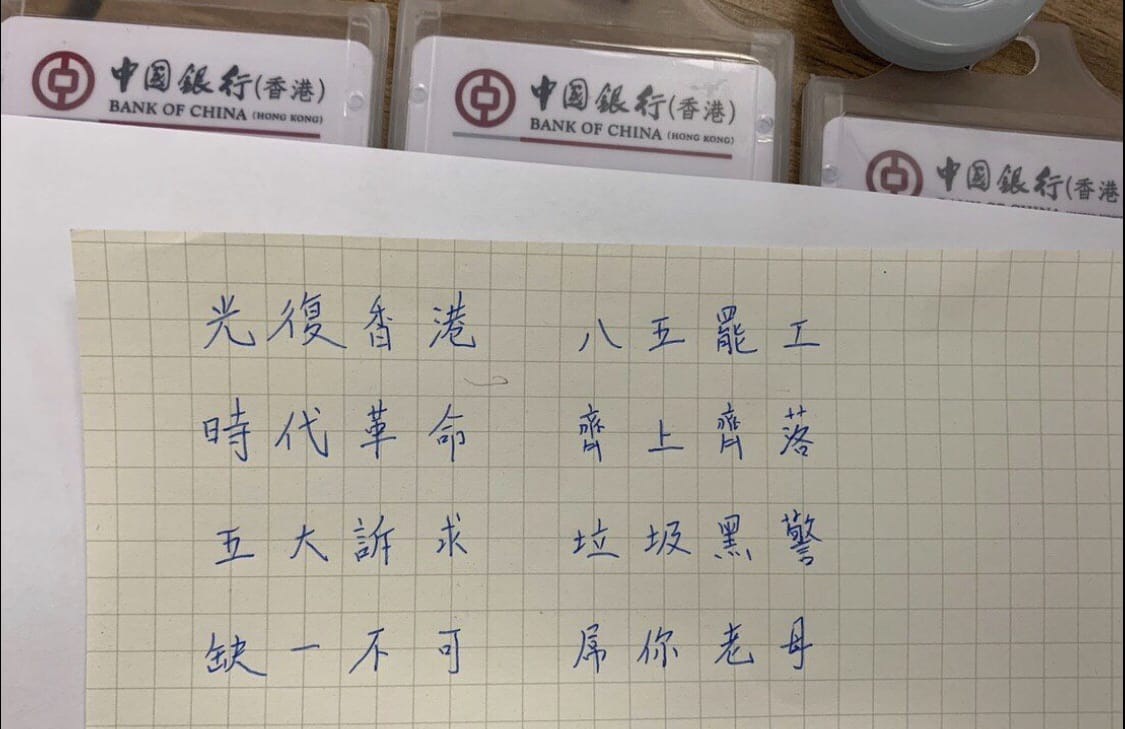 中国銀行(香港)
BANK OF CHINA (HONG KONG)
中国銀行(香港)
BANK OF CHINA (HONG KONG)
中国銀行(香港
光復香港 八五罷工
時代革命 齊上齊落
五大訴求 垃圾黑警
缺一不可 屌你老母